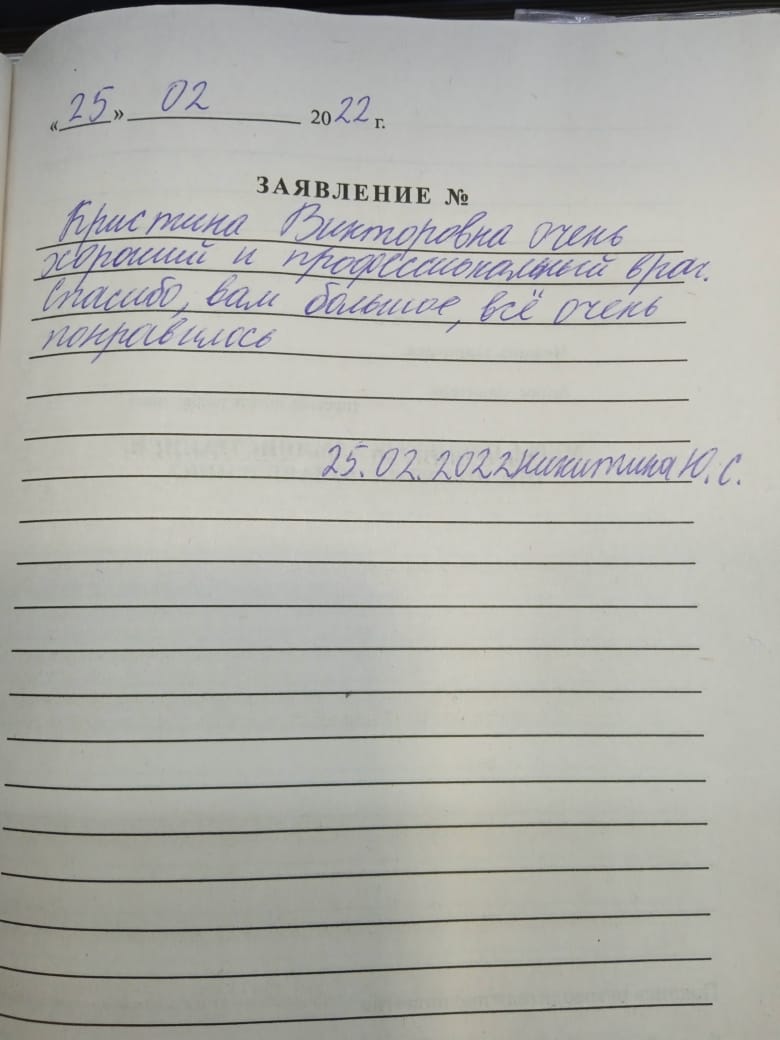 «25» 02 2022 г.
ЗАЯВЛЕНИЕ №
Кристина Викторовна очень
хороший и профессиональный врач.
Спасибо, вам большое, всё очень
понравилось
25.02.2022 Никитина Ю.С.